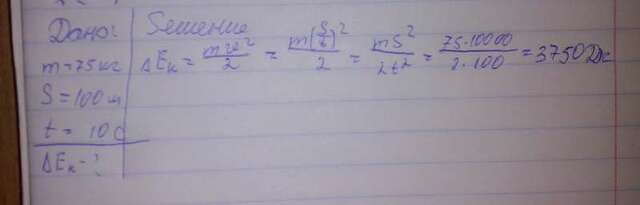 Дано:
m = 75 кг
S = 100 м
t = 10 с
ΔEк - ?
Решение
ΔEк = mv²/2 = m(S/t)²/2 = mS²/2t² = 75·10000/2·100 = 3750 Дж